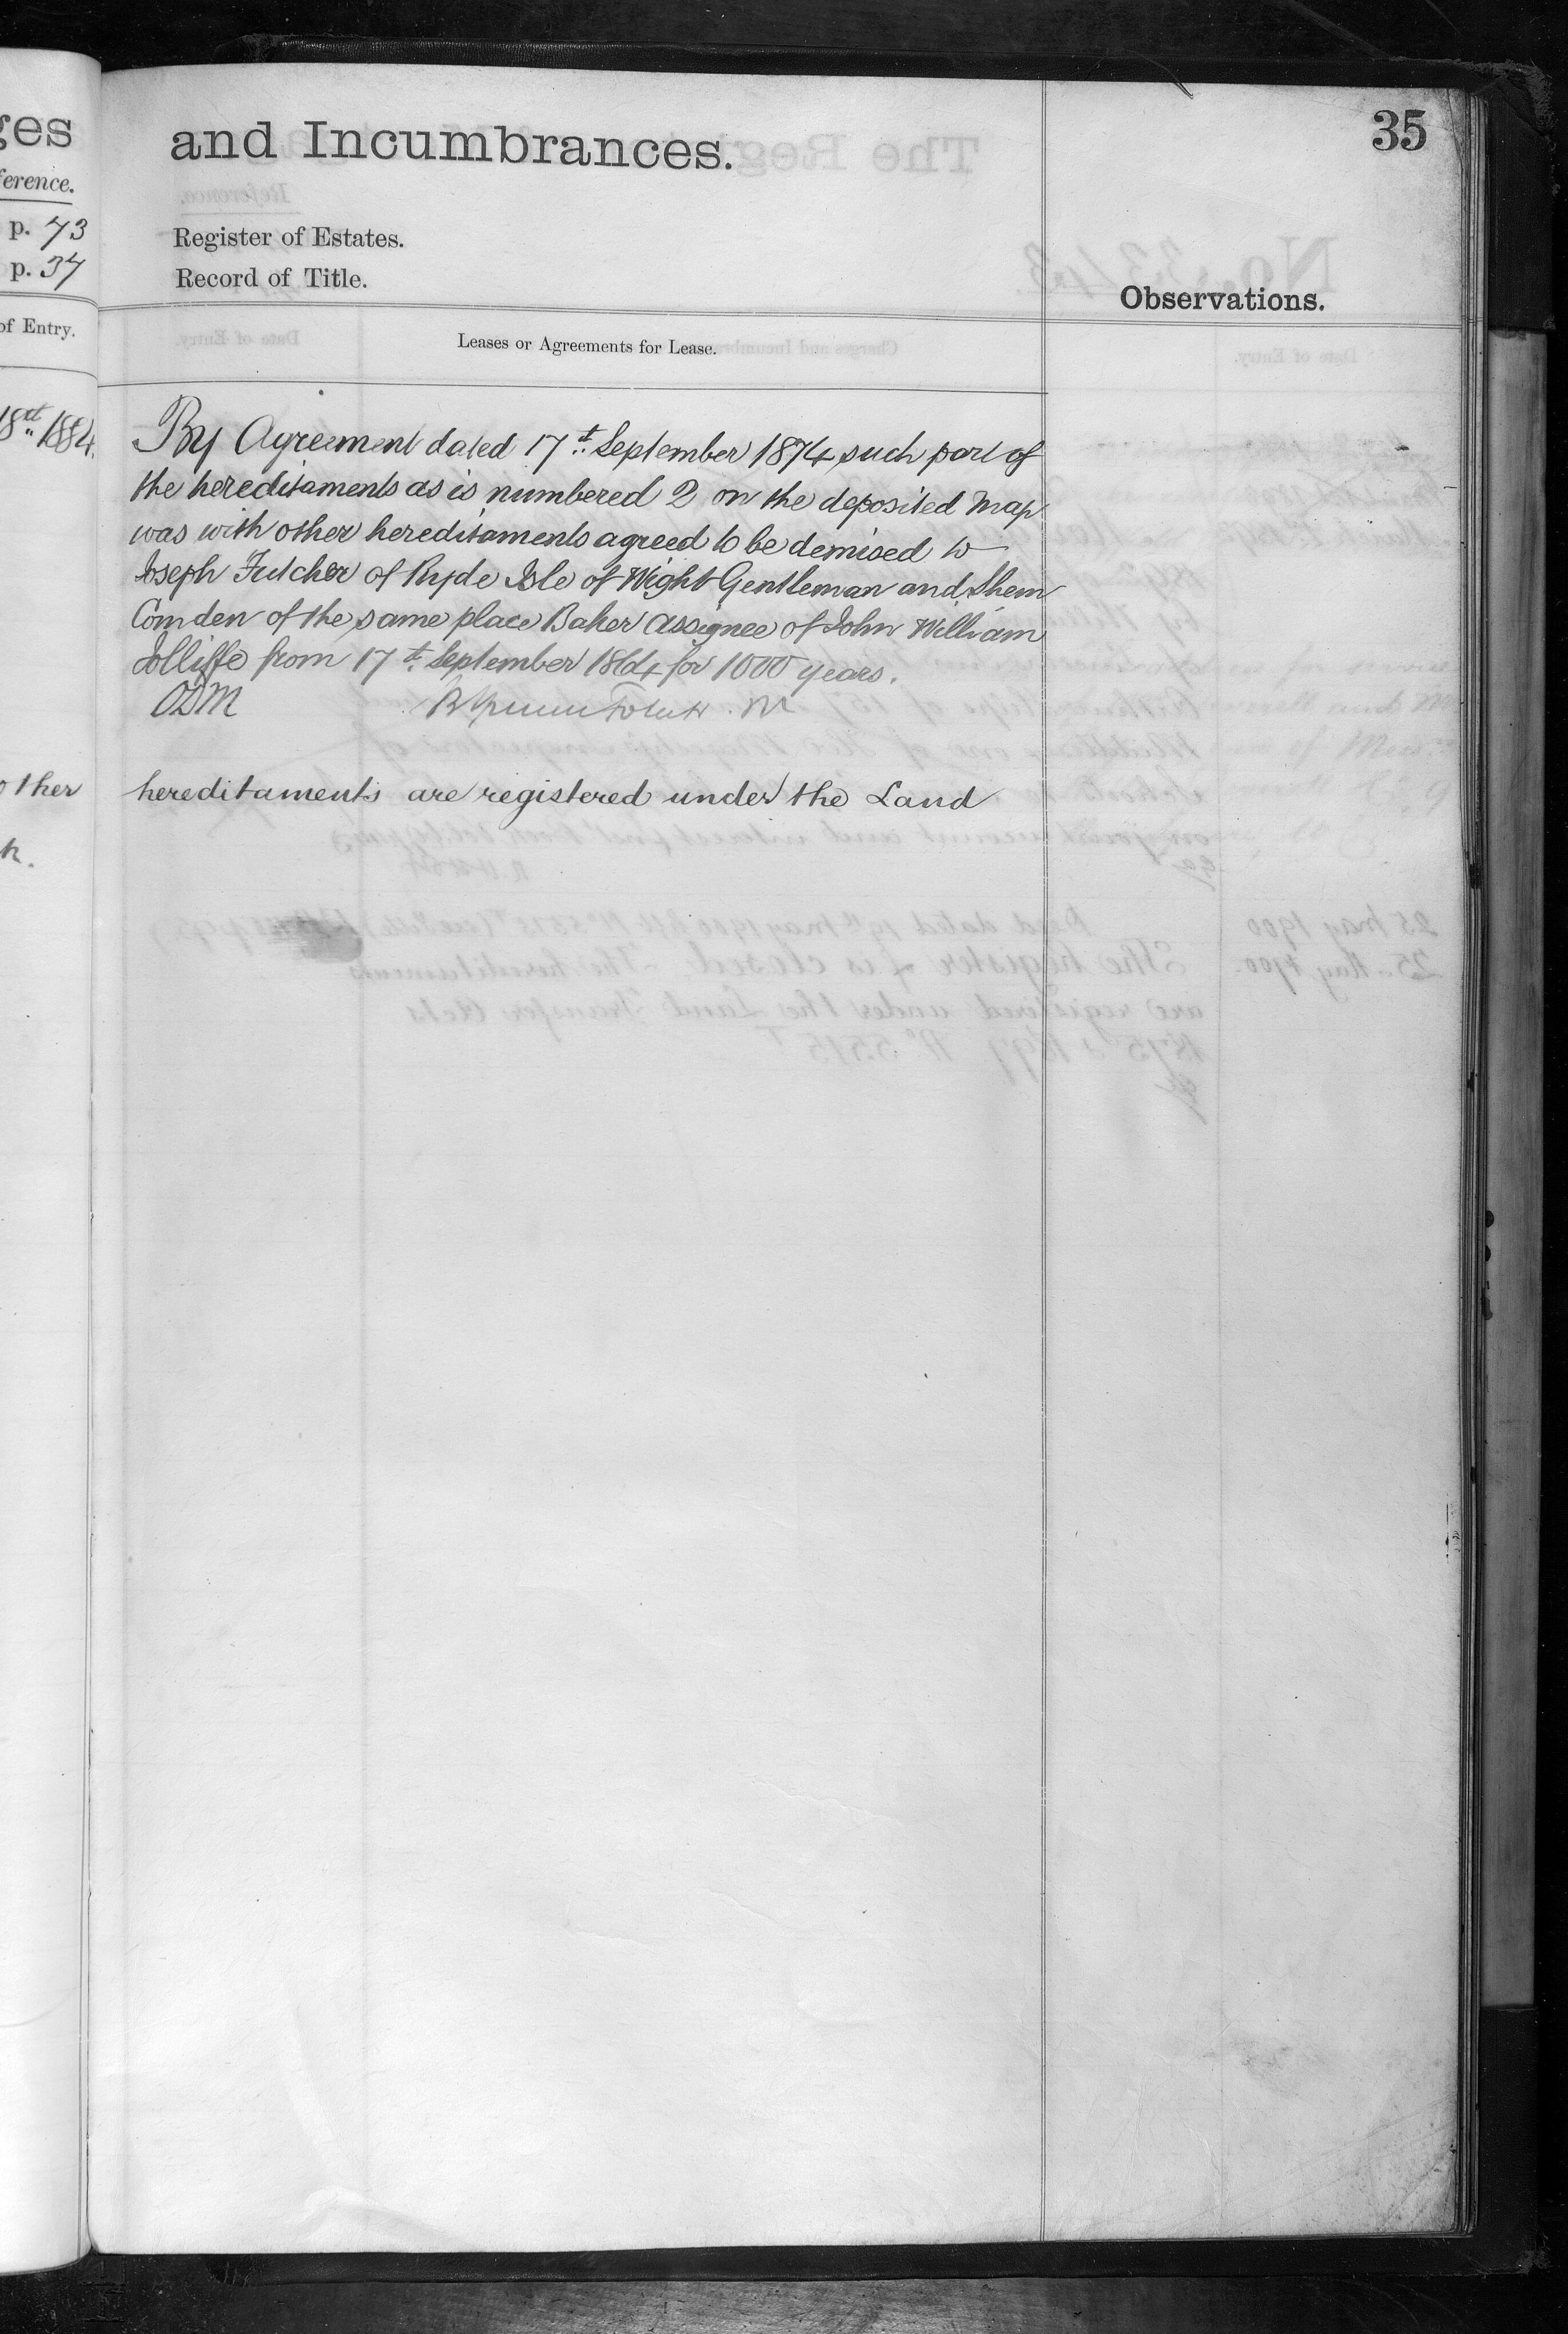 ges
ference.
p. 73
p. 37
of Entry.
18th 1884.
other
35
and Incumbrances.
Register of Estates.
Record of Title.
Observations.
Leases or Agreements for Lease.
By Agreement dated 17th September 1874 such part of
the hereditaments as is numbered 2 on the deposited Map
was with other hereditaments agreed to be demised to
Joseph Futcher of Ryde Isle of Wight Gentleman and Shem
Comden of the same place Baker assignee of John William
Jolliffe from 17th September 1864 for 1000 years.
ODM
hereditaments are registered under the Land